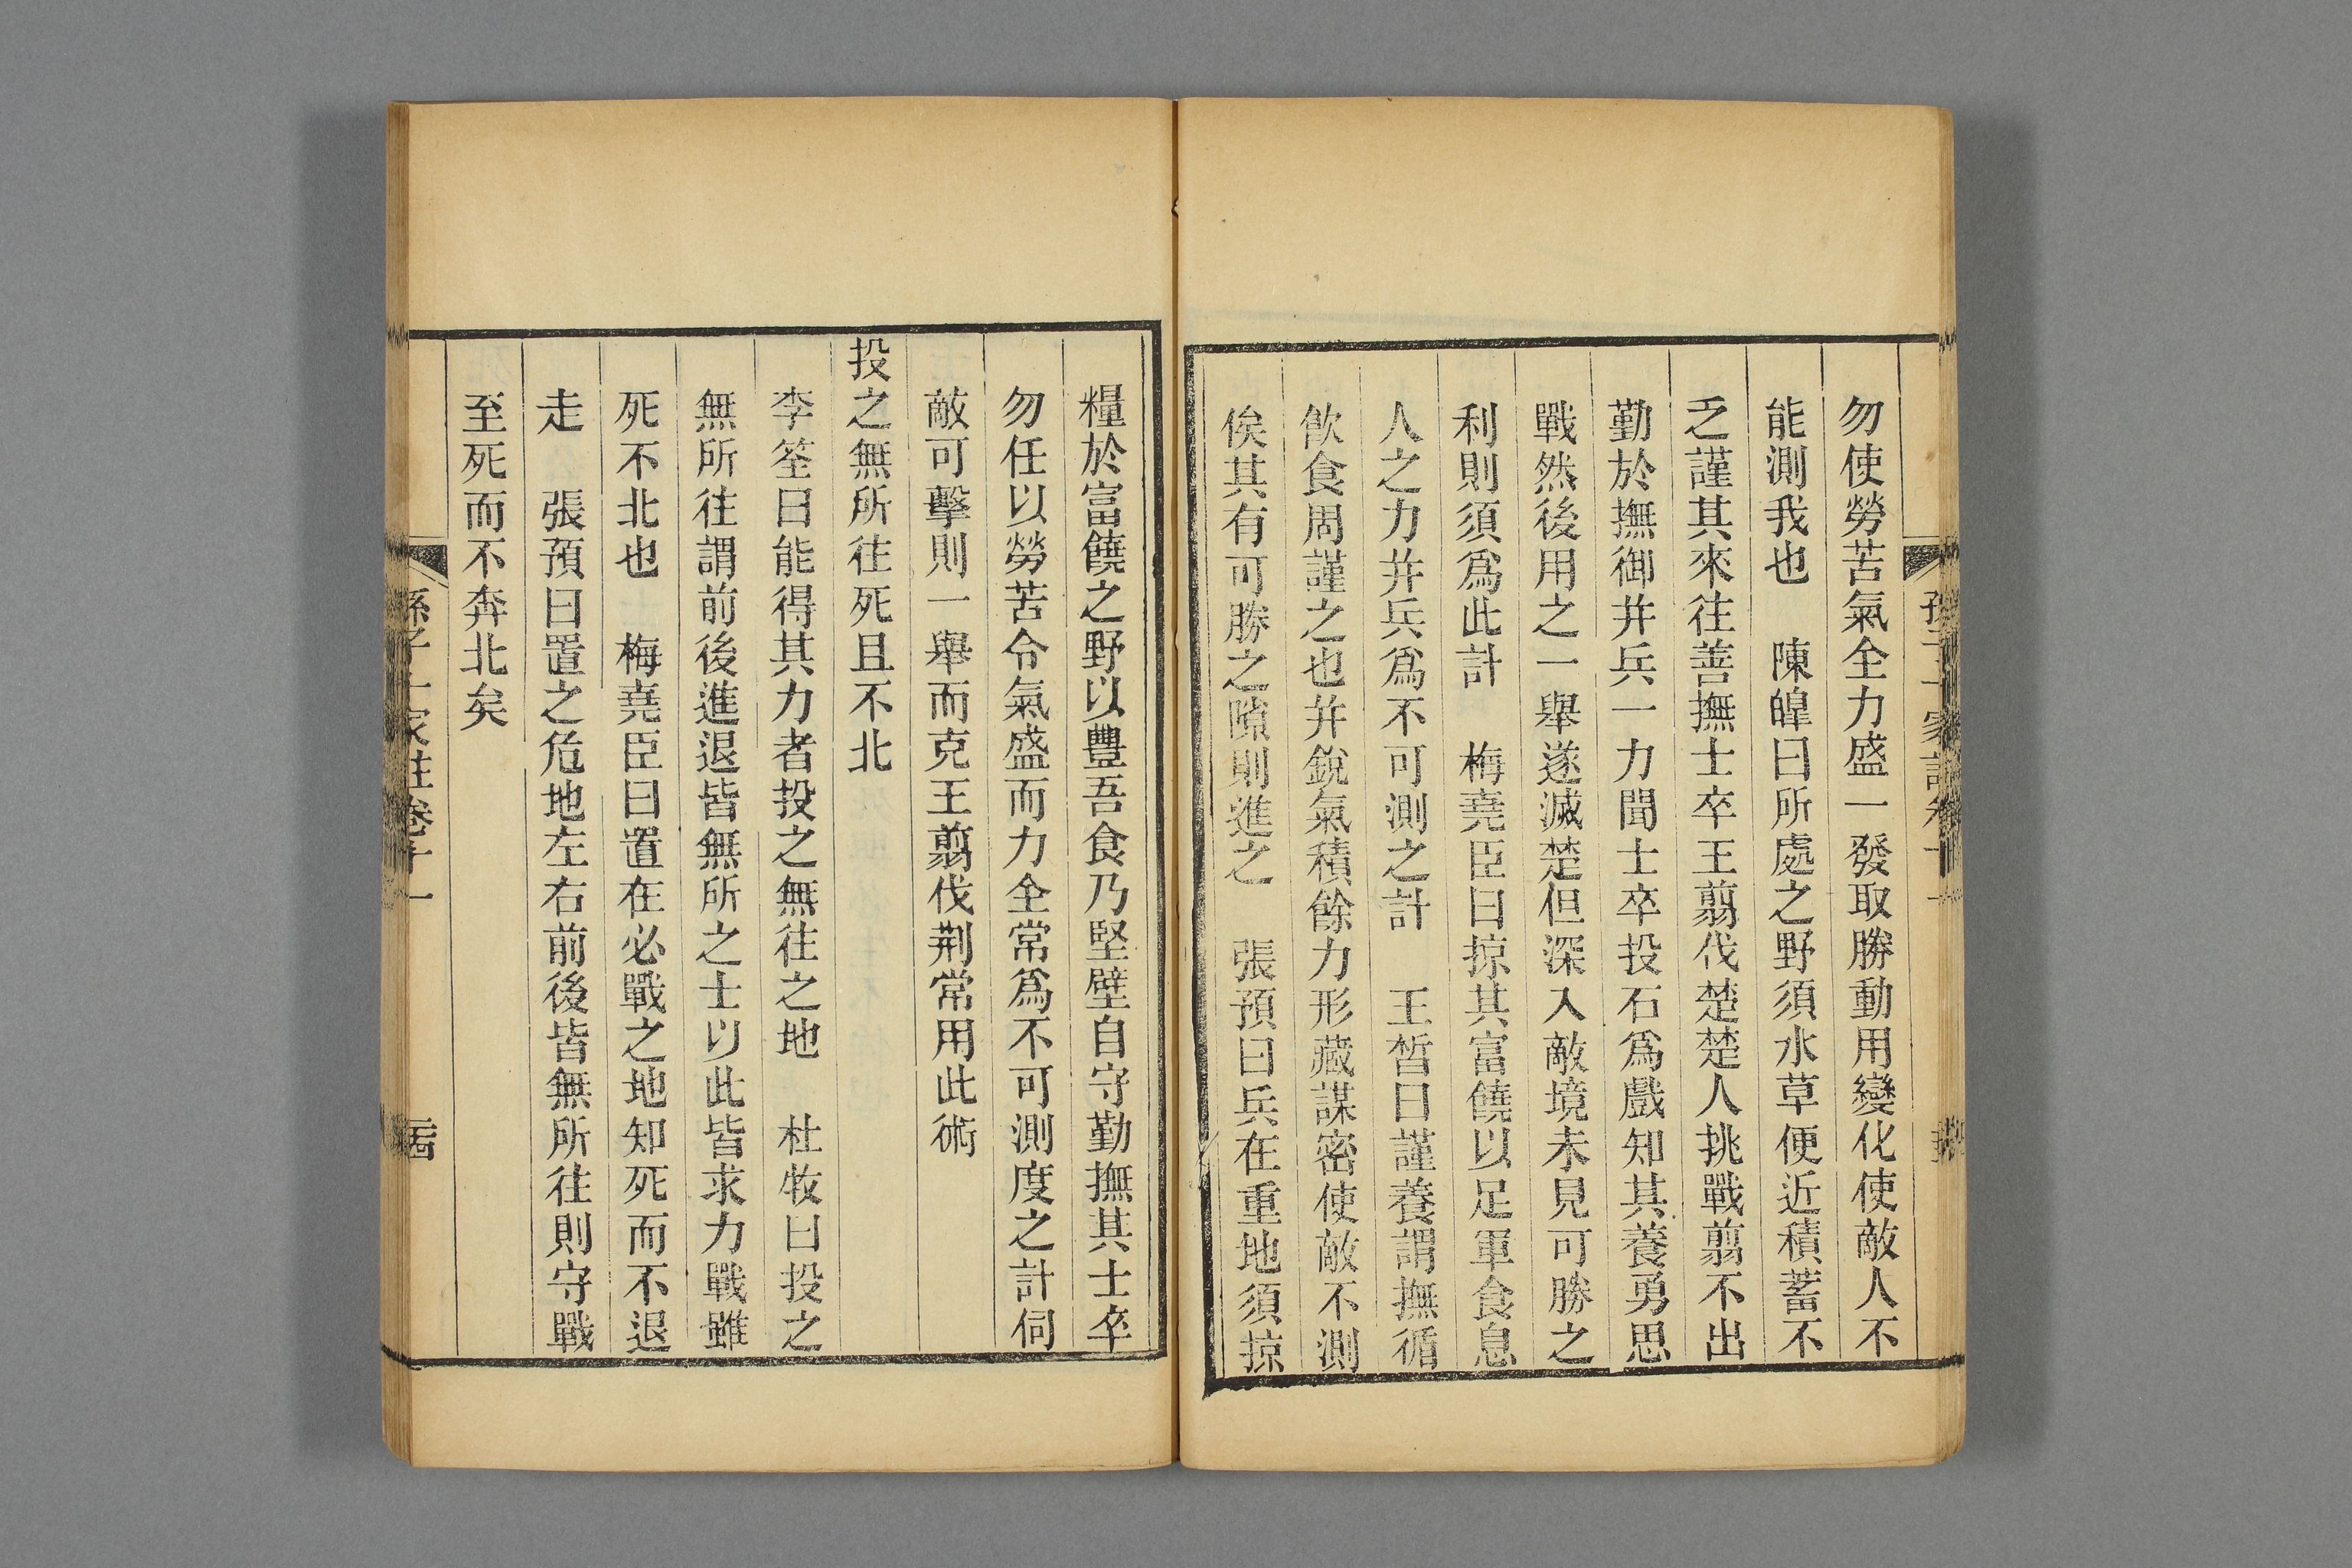 勿使勞苦氣全力盛一發取勝動用變化使敵人不
能測我也　陳皥曰所處之野須水草便近積蓄不
乏謹其來往善撫士卒王翦伐楚楚人挑戰翦不出
勤於撫御并兵一力聞士卒投石爲戲知其養勇思
戰然後用之一舉遂滅楚但深入敵境未見可勝之
利則須爲此計　梅堯臣曰掠其富饒以足軍食息
人之力并兵爲不可測之計　王晳曰謹養謂撫循
飮食周謹之也并銳氣積餘力形藏謀密使敵不測
俟其有可勝之隙則進之　張預曰兵在重地須掠
糧於富饒之野以豐吾食乃堅壁自守勤撫其士卒
勿任以勞苦令氣盛而力全常爲不可測度之計伺
敵可擊則一舉而克王翦伐荆常用此術
投之無所往死且不北
李筌曰能得其力者投之無往之地　杜牧曰投之
無所往謂前後進退皆無所之士以此皆求力戰雖
死不北也　梅堯臣曰置在必戰之地知死而不退
走　張預曰置之危地左右前後皆無所往則守戰
至死而不奔北矣
孫子十家註卷十一